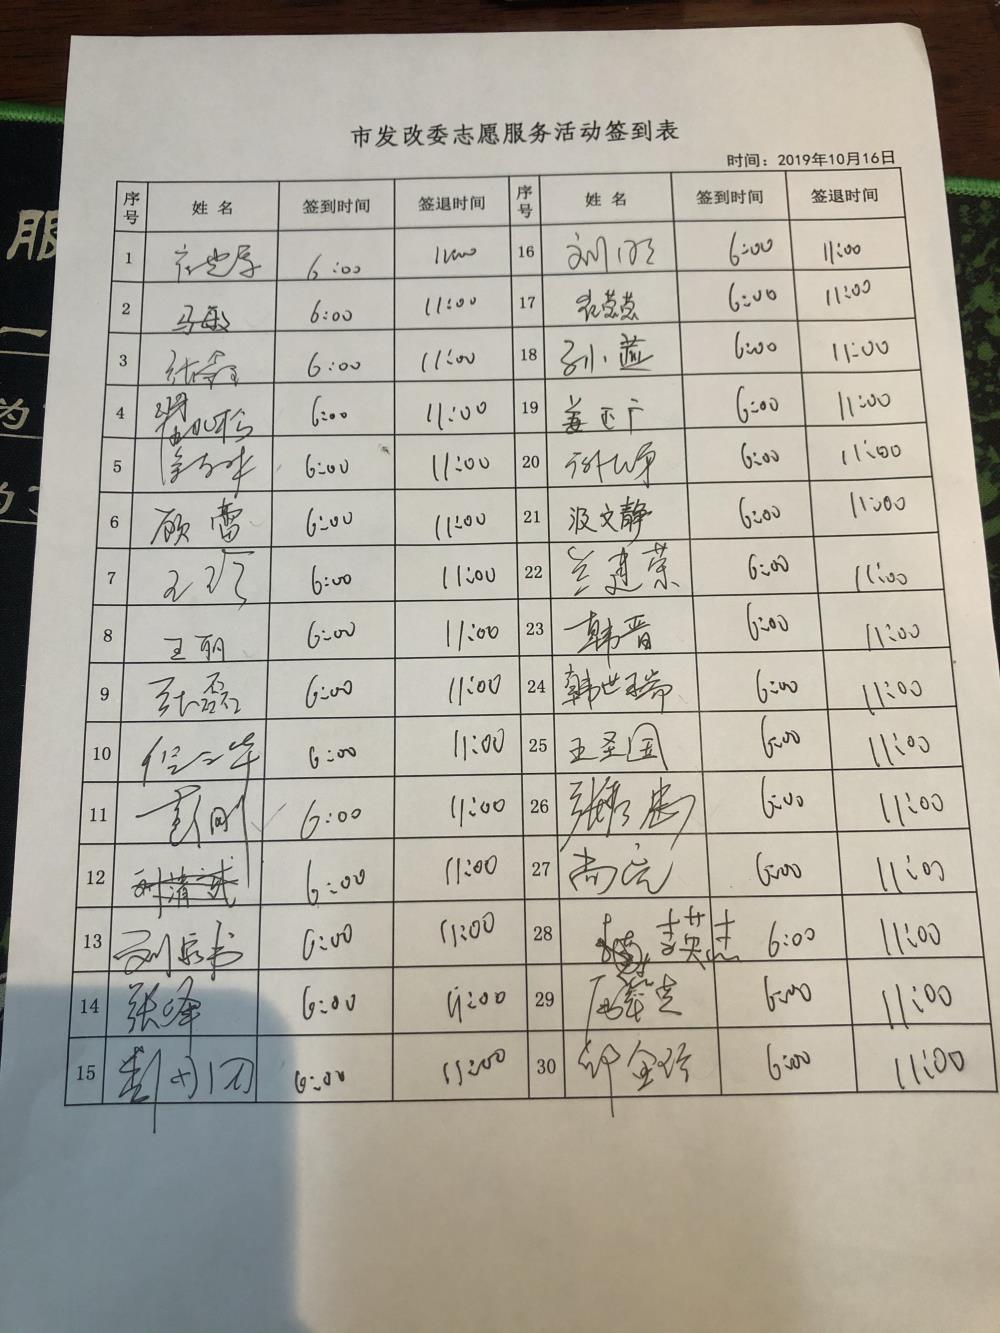 市发改委志愿服务活动签到表
时间：2019年10月16日
序号 姓名 签到时间 签退时间 序号 姓名 签到时间 签退时间
1 6:00 11:00 16 刘明 6:00 11:00
2 马敏 6:00 11:00 17 袁慧慧 6:00 11:00
3 6:00 11:00 18 孙小燕 6:00 11:00
4 6:00 11:00 19 姜 6:00 11:00
5 6:00 11:00 20 6:00 11:00
6 顾雷 6:00 11:00 21 汲文静 6:00 11:00
7 王 6:00 11:00 22 兰建荣 6:00 11:00
8 王丽 6:00 11:00 23 韩晋 6:00 11:00
9 张磊 6:00 11:00 24 韩世瑞 6:00 11:00
10 任 华 6:00 11:00 25 王圣国 6:00 11:00
11 彭刚 6:00 11:00 26 张 忠 6:00 11:00
12 刘清 6:00 11:00 27 尚 6:00 11:00
13 刘 6:00 11:00 28 李英杰 6:00 11:00
14 张峰 6:00 11:00 29 6:00 11:00
15 彭 6:00 11:00 30 钟金 6:00 11:00
服
一
为